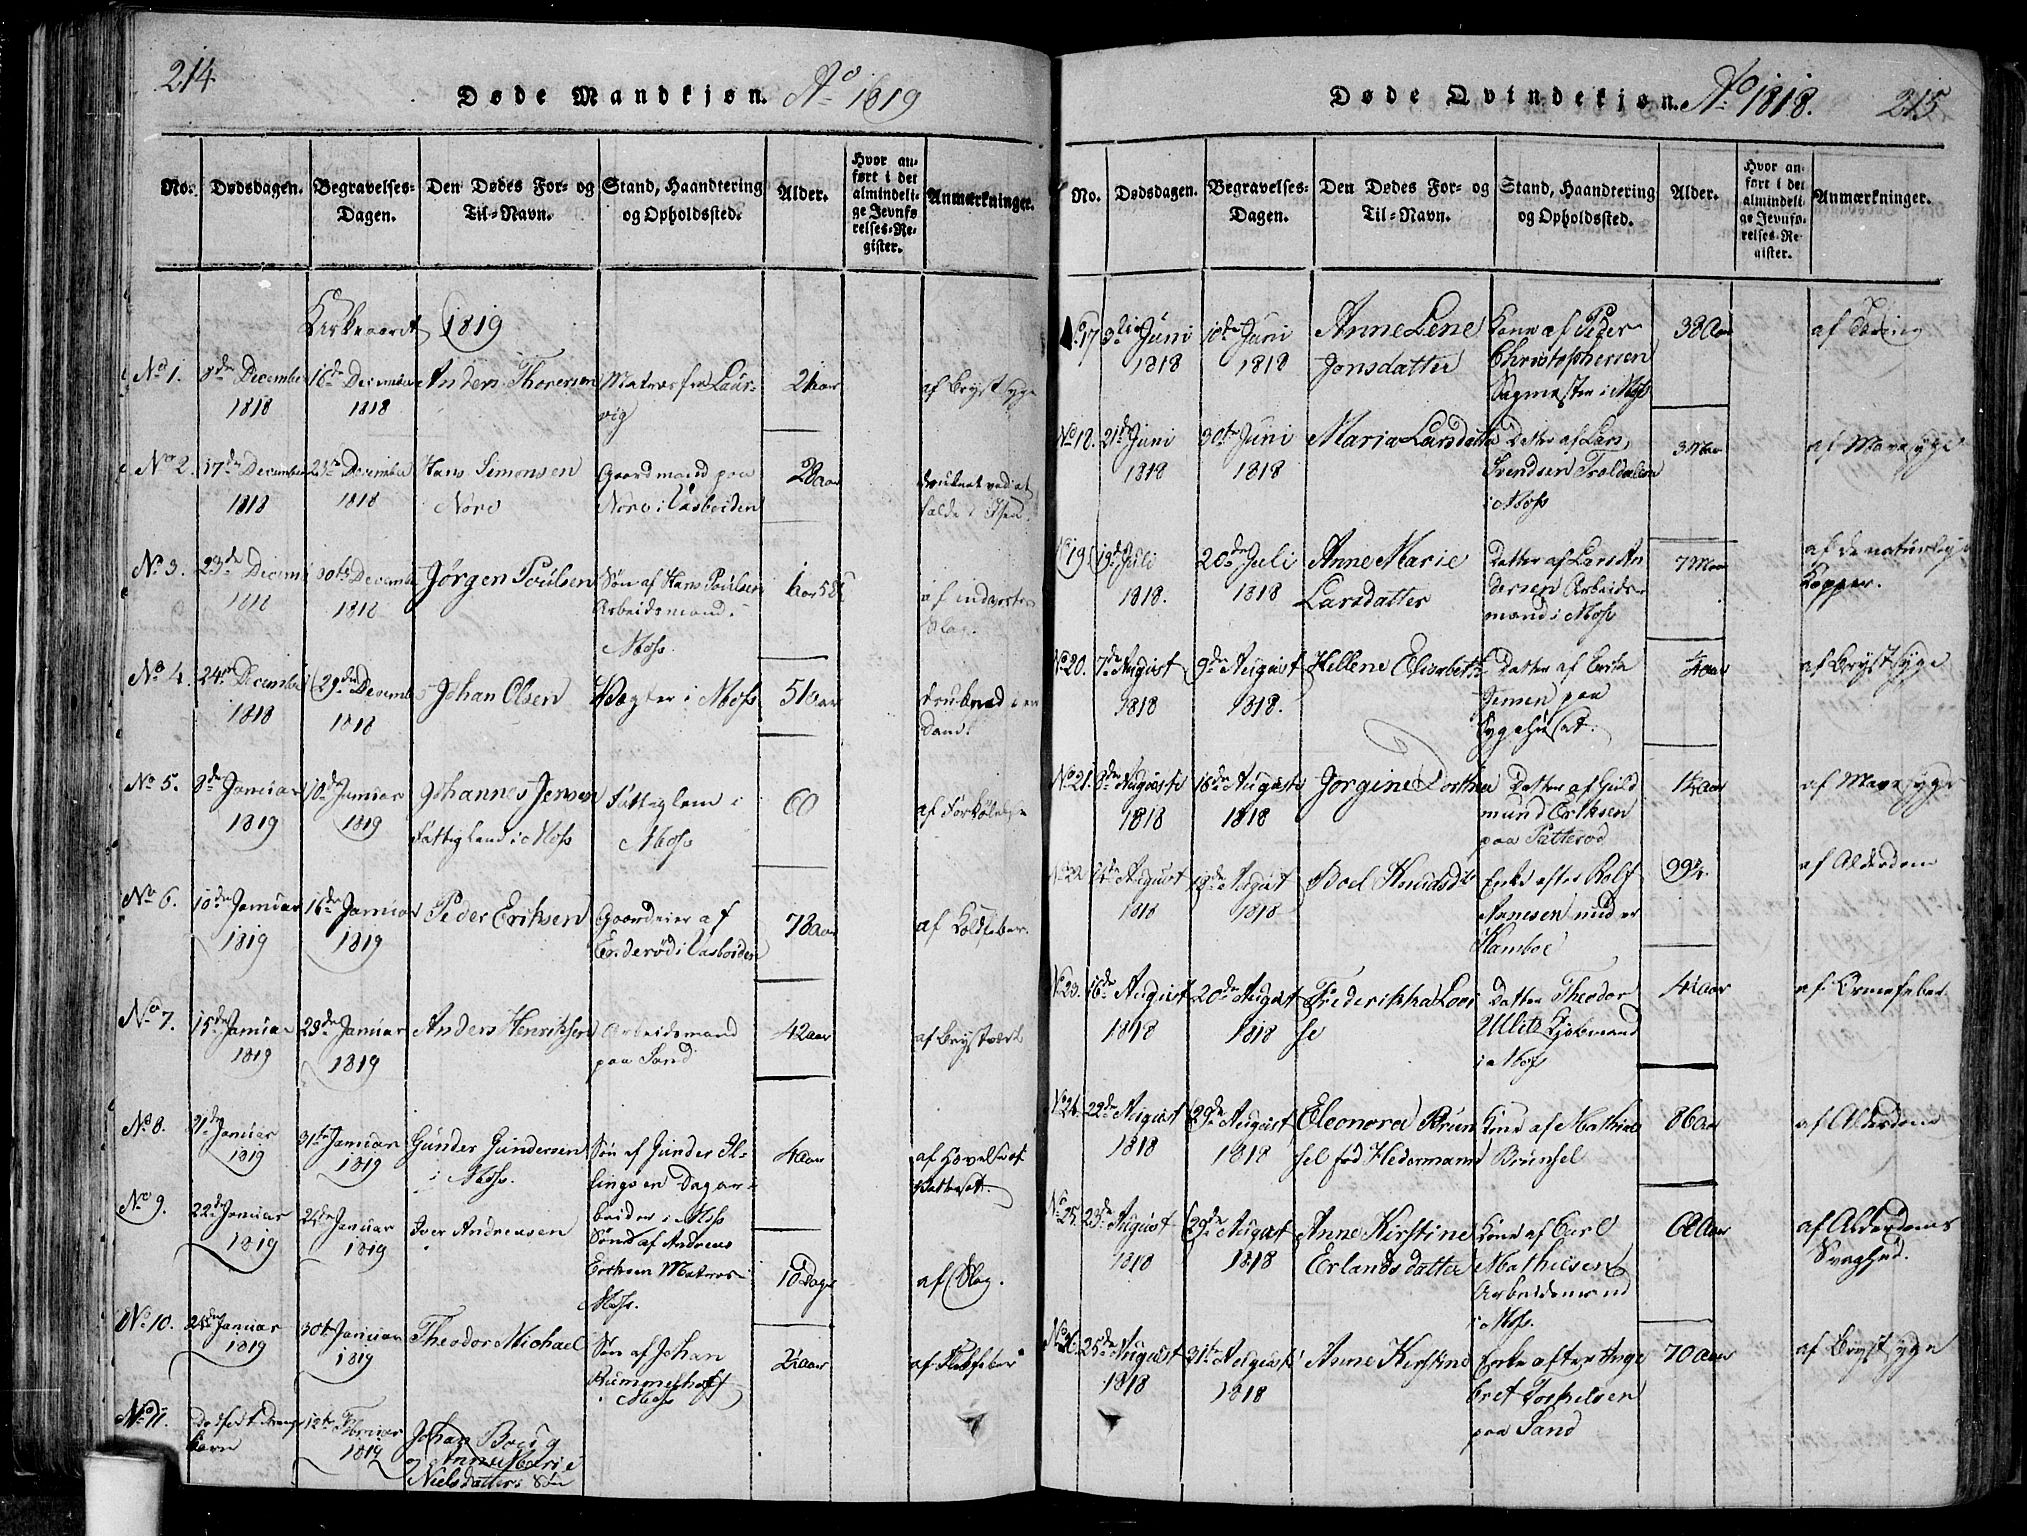 214
Døde Mandkjøn. Ao 1819
No.
Dødsdagen.
Begravelses-
Dagen.
Den Dødes For- og
Til-Navn.
Stand, Haandtering
og Opholdssted.
Alder.
Hvor an-
ført i det
almindeli-
ge Jevnfø
relses-Re-
gister.
Anmærkninger.
Kirkeaaret 1819
No 1. 8de December 1818 16de December 1818 Anders Thoresen Matros fra Laur-
vig af Brystsyge
No 2. 17de December 1818 December 1818 Hans Simonsen
Nore Gaardmand paa
Nore i Vasbeiden 28 aar druknet ved at
falde i
No 3. 23de Decemb 1818 30te Decemb 1818 Jørgen Poulsen Søn af Hans Poulsen
Arbeidsmand i
Moss.
No 4. 24de December 1818 29de Decembe 1818 Johan Olsen Vægter i Moss 51 aar druknad i en
Dam.
No 5. 8de Januar 1819 10de Januar 1819 Johannes Jensen
Fattiglem i Moss Fattiglem i
Moss 60 af Forkølelse
No 6. 10de Januar 1819 16de Januar 1819 Peder Eriksen Gaardeier af
Enderød i Vasbeiden 78 aar af Koldfeber.
No 7. 15de Januar 1819 23de Januar 1819 Anders Henrichsen Arbeidsmand
paa Sand 42 aar af Brystværk
No 8. 21de Januar 1819 31te Januar 1819 Gunder Gundersen
i Moss. Søn af Gunder El-
lingsen Dagar-
beider i Moss 4 aar
No 9. 22de Januar 1819 Januar 1819 Iver Andreasen Søn af Andreas
Eriksen Matros
Moss. 10 Dage af Slag.
No 10. Januar 1819 30te Januar 1819 Theodor Michael Søn af Johan
Rummelhoff
Moss 2 aar af
No 11. Dødfødt Drenge
barn 12te Februar 1819 Johan
og Anne Marie
Nielsdatters Søn
Døde Qvindekjøn. Ao 1818. 215
No.
Dødsdagen.
Begravelses-
Dagen.
Den Dødes For- og
Til-Navn.
Stand, Haandtering
og Opholdssted.
Alder.
Hvor an-
ført i det
almindeli-
ge Jevnfø-
relses-Re-
gister.
Anmærkninger.
No 17 Juni 1818 10de Juni 1818 Anne Lene
Jonsdatter Kone af Peder
Christophersen
Sagmester i Moss 38 aar af Tæring
No 18. 21de Juni 1818 30te Juni 1818 Maria Larsdatter Datter af Lars
Svendsen Troldalen
i Moss af Mavesyge
No 19. Juli 1818. 20de Juli 1818 Anne Marie
Larsdatter Datter af Lars An
dersen Arbeids-
mand i Moss 7 Maa af de naturlige
Kopper.
No 20. 7de August 1818 9de August 1818. Hellene Elisabeth Datter af
Jensen paa
Sygehuset. af Brystsyge
No 21. 8de August 1818 16de August 1818 Jorgine Dorthea Datter af Guld
mund Eriksen
paa Patterød af Mavesyge
No 22. August 1818 19de August 1818 Boel Knudsdtr Enke efter Rolf
Arnesen
Kamboe 99 af Alderdom
No 23. 16de August 1818 20de August 1818 Frederikka Loui
se Datter Theodor
Ullitz Kjøbmand
i Moss af Ormefeber
No 24. 22de August 1818 29de August 1818 Eleonora Brun
sel fød Hedermann Kone af Mathias
Brunsel 86 aar af Alderdom
No 25. 23de August 1818 29de August 1818 Anne Kirstine
Erlandsdatter Kone af Carl
Mathiesen
Arbeidsmand
i Moss. af Alderdoms
Svaghed.
No 26. 25de August 1818 31te August 1818 Anne Kirstine Enke efter Inge
bret Torkelsen
paa Sand 70 aar af Brystsyge